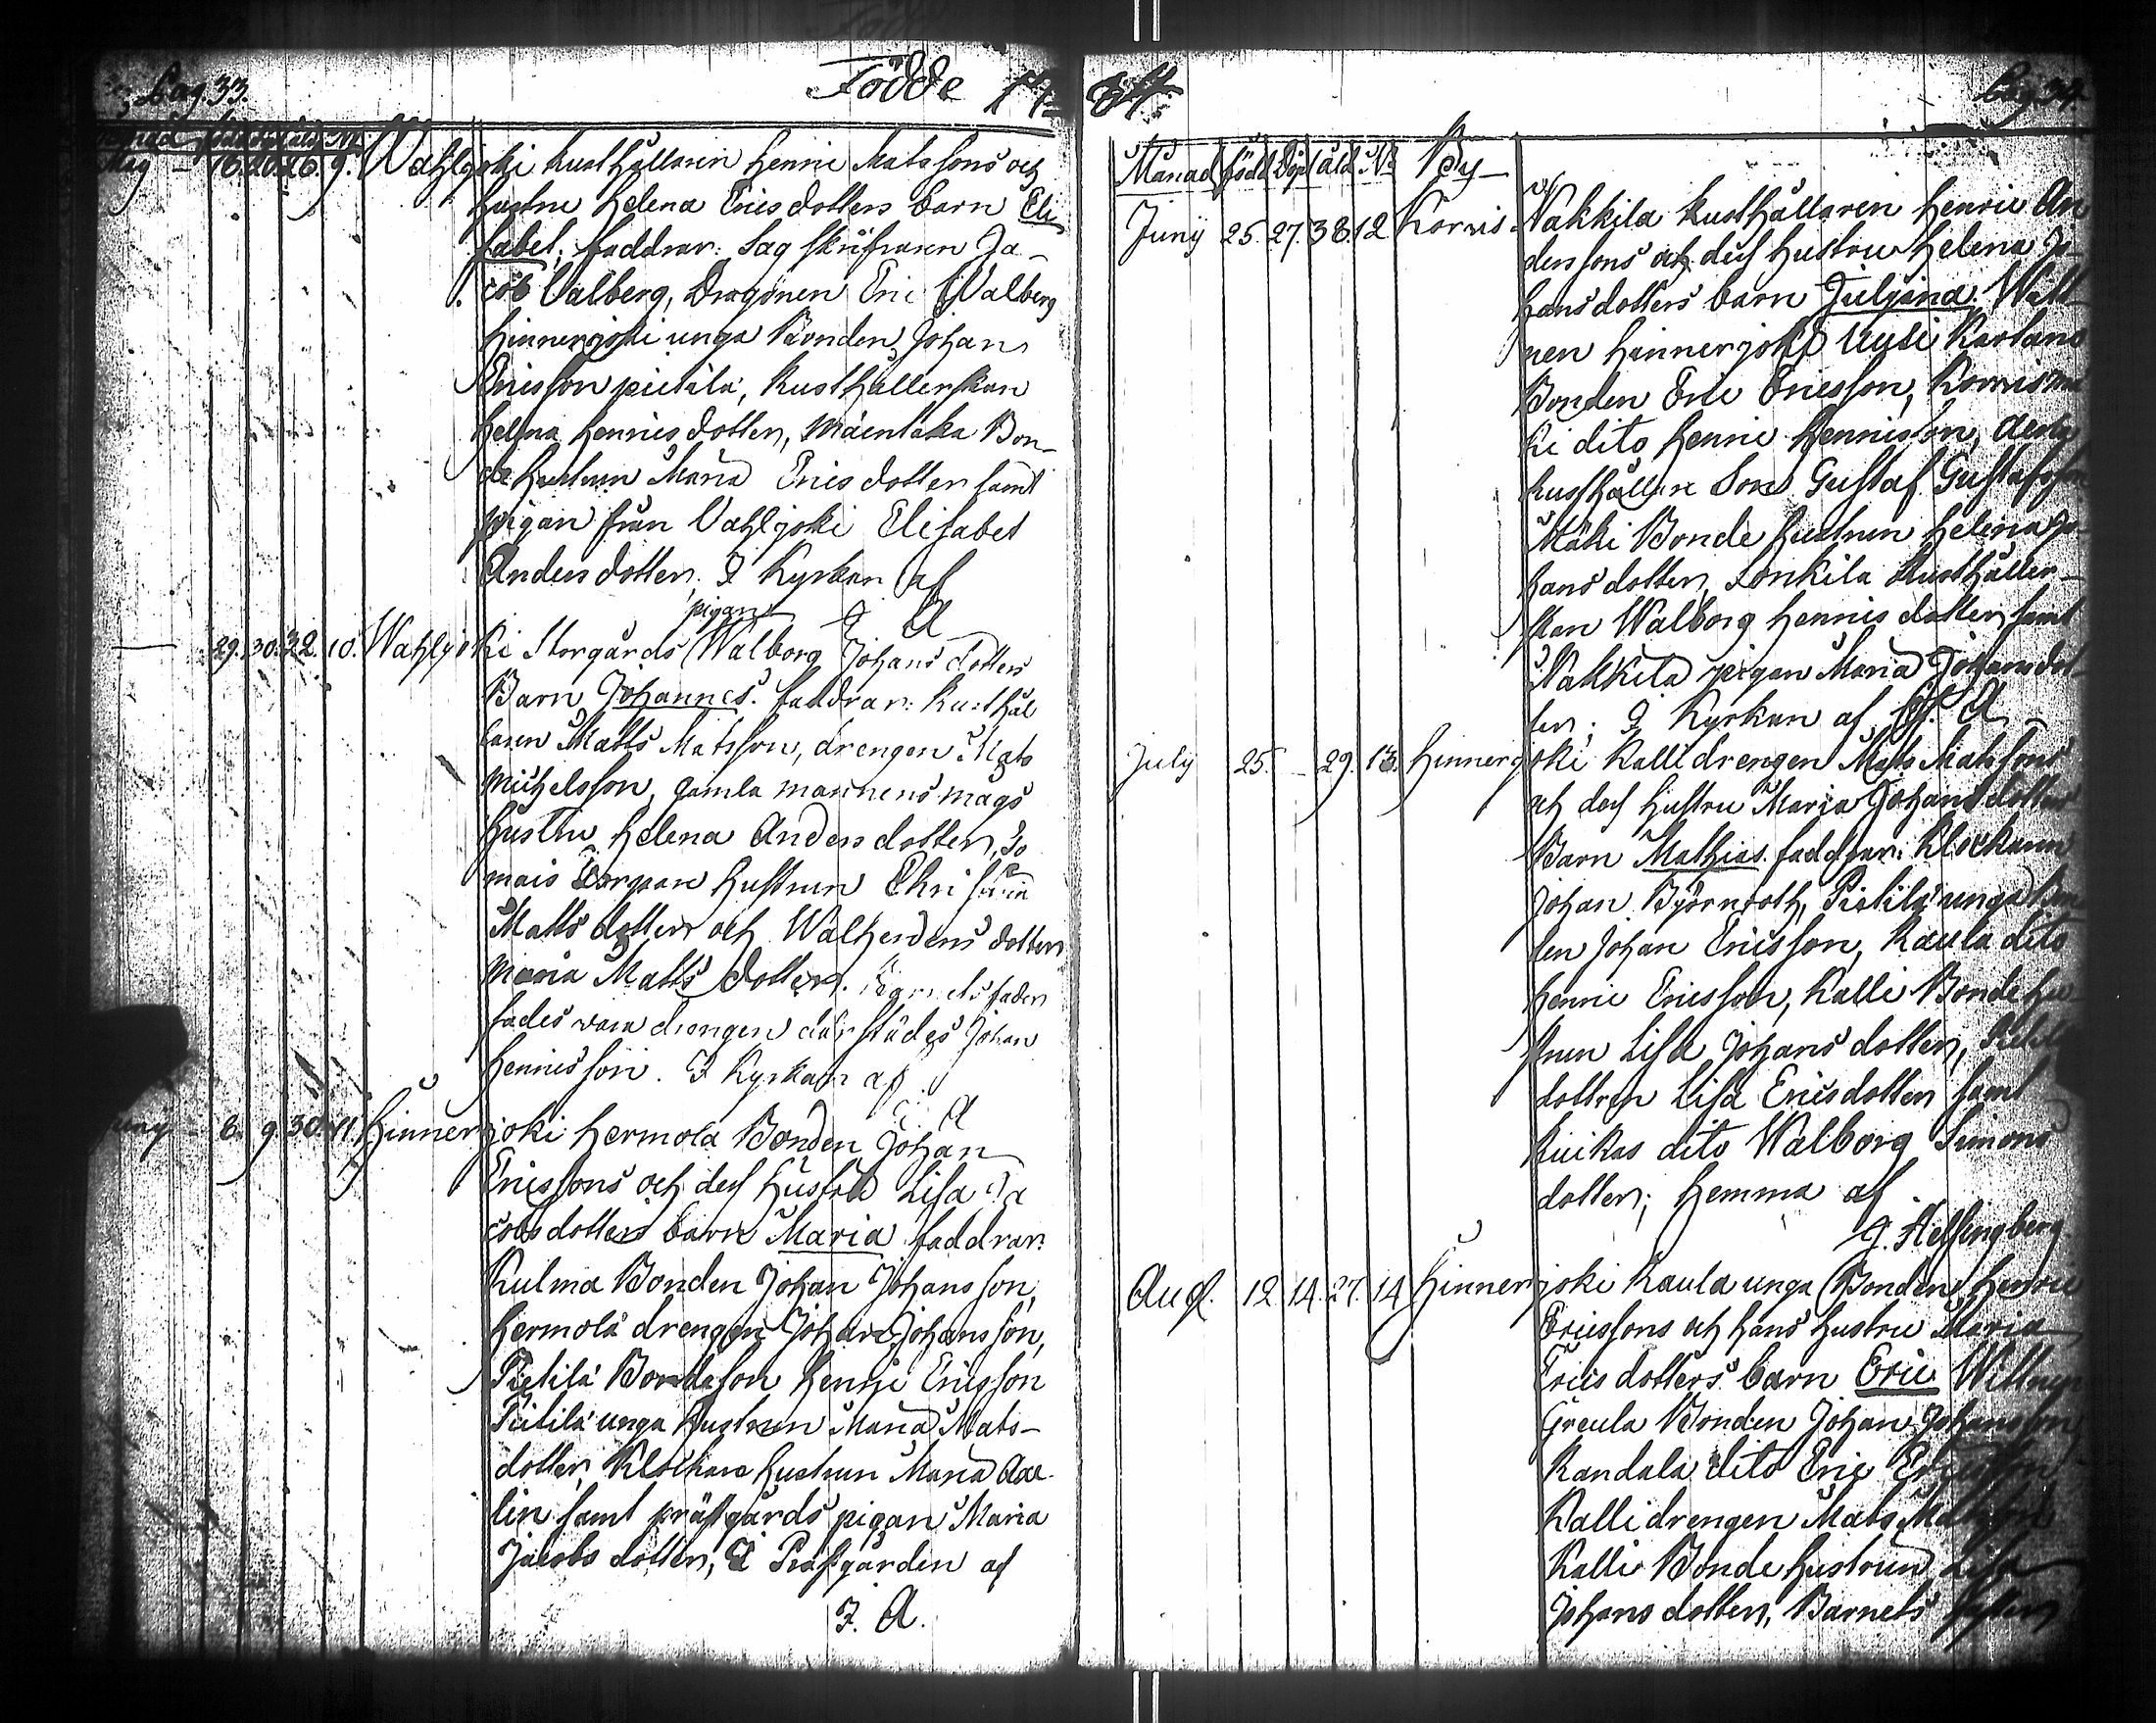 Pag. 33.
Födde 17
May - 16. 20. 26. 9. Wahlyoki Rusthållaren Henric Matssons och
hustru Helena Ericsdotters barn Eli
sabet; faddrar: Lag skrifvaren Ja-
cob Valberg, Dragonen Eric Walberg
Hinnerjoki unga Bonden Johan
Ericsson pietilä, Rusthållerskan
Helena Henricsdotter, Mäentaka Bon-
de hustrun Maria Ericsdotter samt
pigan från Vahljoki Elisabet
Andersdotter. I Kyrkan af
J A
29. 30. 32. 10. Wahlyoki Storgårds pigan Walborg Johans dotters
Barn Johannes. faddrar: Rusthål
laren Matts Matsson, drengen Mats
Michelsson, gamla mannens mågs
hustru Helena Andersdotter,
mais Torpare hustrun
Matts dotter och Walhendens dotter
Maria Matts dotter. Barnets fader
sades vara drengen där städes Johan
Henricsson. I Kyrkan af
A
8. 9. 30. 11. Hinnerjoki Hermola Bonden Johan
Ericssons och dess hustru Lisa Ja
cobsdotters barn Maria faddrar:
Kulma Bonden Johan Johansson,
Hermola drengen Johan Johansson,
Pietilä Bondeson Henric Ericsson
Pietilä unga hustrun Maria Mats-
dotter, Klockare hustrun Maria
lin samt prästgårds pigan Maria
Jacobs dotter, I Prästgården af
J. A.
84.
Pag. 34.
Månad född Döpt åld. No By
Juny 25. 27. 38. 12 Korvis Nakkila Rusthållaren Henric An
derssons och dess hustru Helena Jo
hansdotters barn Juljana. Witt
nen Hinnerjoki Uusi Kartano
Bonden Eric Ericsson, Korvisma
ki dito Henric Henricsson,
Rusthållare Son Gustaf Gustafsson
Mäki Bonde hustrun Helena Jo
hans dotter, Sonkila Rusthåller-
skan Walborg Henricsdotter samt
Nakkila pigan Maria Johansdot
ter; I Kyrkan af A
July 25. - 29. 13. Hinnerjoki Kalli drengen Mats Matssons
och dess hustru Maria Johans dotters
Barn Mathias. faddrar: Klockaren
Johan Björnroth, Pietilä unga Bon
den Johan Ericsson, Kaula dito
Henric Ericsson, Kalli Bonde hu
strun Lisa Johans dotter,
dottren Lisa Ericsdotter samt
Kuikas dito Walborg Simons
dotter; hemma af
G. Helsingberg
Aug. 12. 14. 27. 14 Hinnerjoki Kaula unga Bonden Henric
Ericssons och hans hustru Maria
Ericsdotters barn Eric Wittnen
Greula Bonden Johan Johansson,
Kandala dito Eric Ericsson
Kalli drengen Mats Matsson
Kalli Bonde hustrun Lisa
Johans dotter, Barnets syster